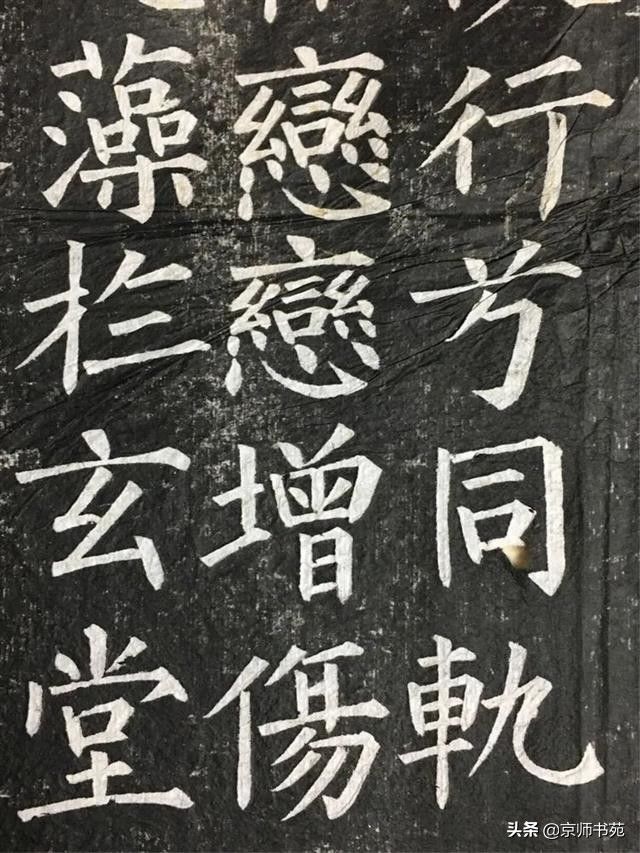 行兮同軌
戀戀增傷
藻於玄堂
頭条 @京师书苑